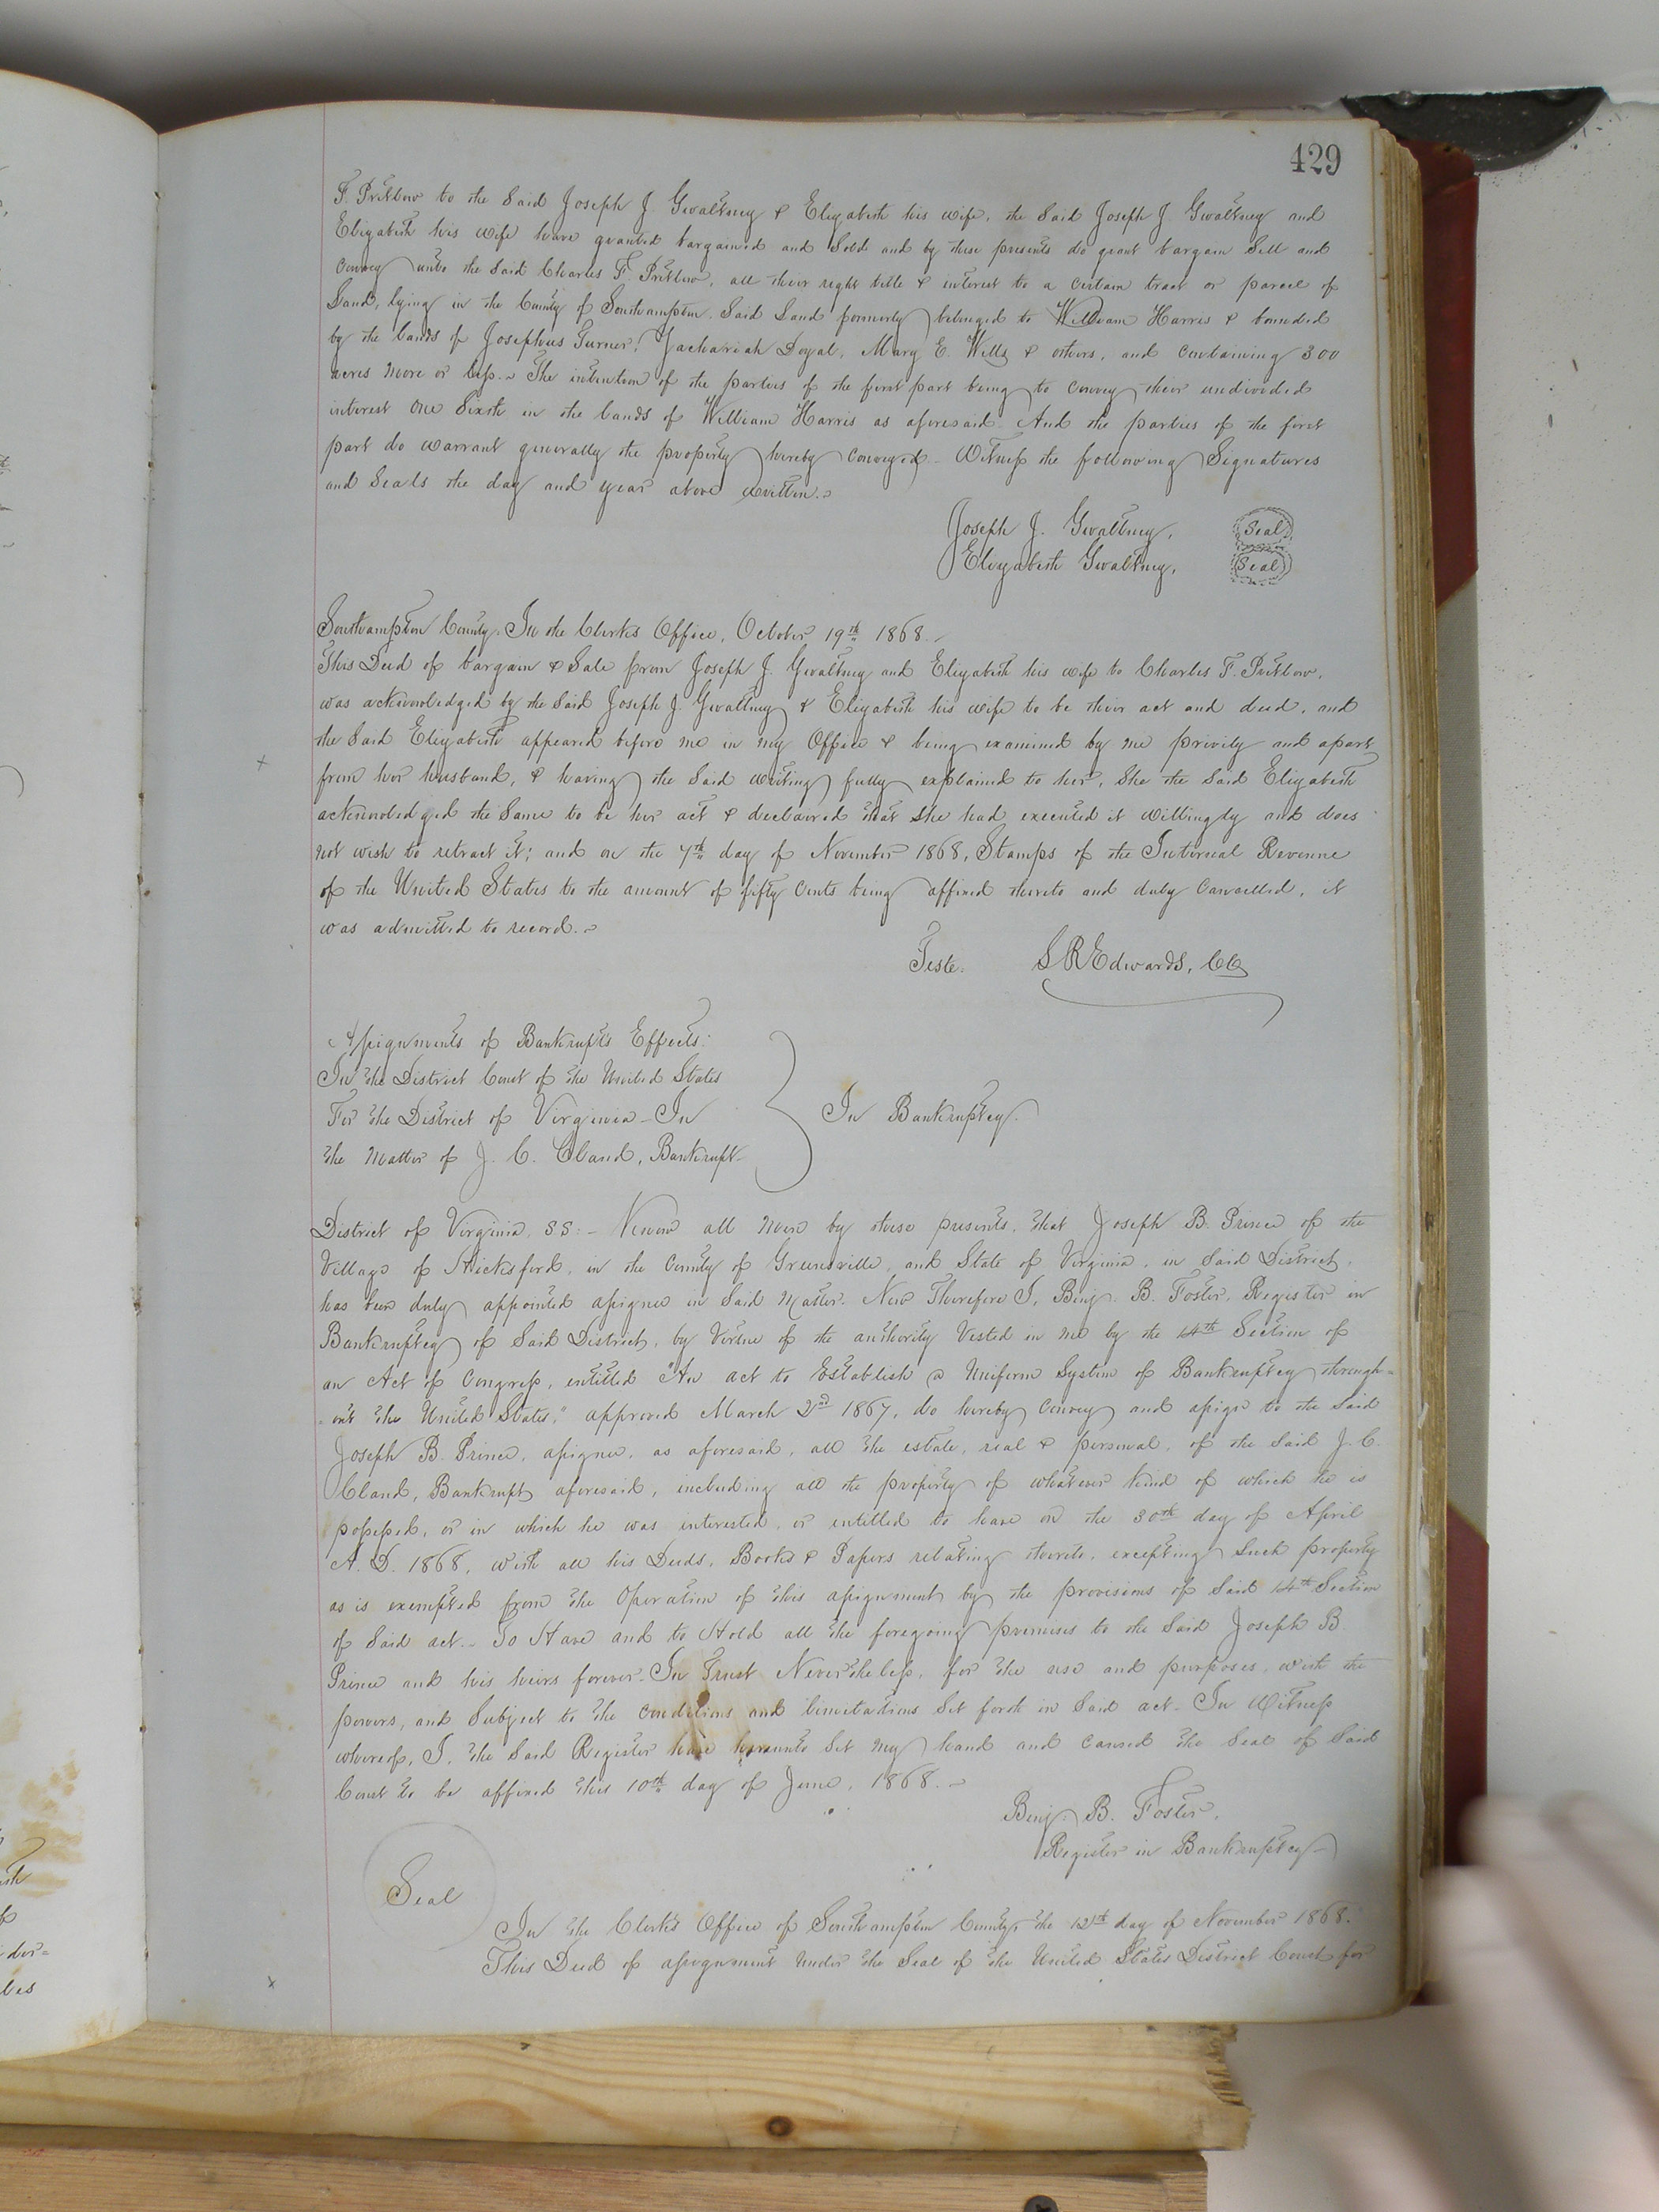 429
F. Pretlow to the Said Joseph J. Gwaltney & Elizabeth his wife, the Said Joseph J. Gwaltney and
Elizabeth his wife have granted bargained and Sold and by these presents do grant bargain Sell and
Convey unto the Said Charles F. Pretlow, all their right title & interest to a Certain tract or parcel of
Land, lying in the County of Southampton. Said Land formerly belonged to William Harris & bounded
by the lands of Josephus Turner, Zachariah Doyal, Mary E. Wills & others, and Containing 300
acres More or less. The intention of the parties of the first part being to Convey their undivided
interest One Sixth in the lands of William Harris as aforesaid. And the parties of the first
part do warrant generally the property hereby Conveyed. Witness the following Signatures
and Seals the day and year above written.
Joseph J. Gwaltney, Seal
Elizabeth Gwaltney, Seal
Southampton County. In the Clerk's Office, October 19th 1868.
This Deed of bargain & Sale from Joseph J. Gwaltney and Elizabeth his wife to Charles F. Pretlow,
was acknowledged by the Said Joseph J. Gwaltney & Elizabeth his wife to be their act and deed, and
the Said Elizabeth appeared before me in my Office & being examined by me privily and apart
from her husband, & having the Said writing fully explained to her, She the Said Elizabeth
acknowledged the Same to be her act & declaired that She had executed it willingly and does
not wish to retract it; and on the 7th day of November 1868, Stamps of the Internal Revenue
of the United States to the amount of fifty Cents being affixed thereto and duly Cancelled, it
was admitted to record.
Teste. S R Edwards, CC
Assignments of Bankrupt's Effects:
In the District Court of the United States
For the District of Virginia - In
the Matter of J. C. Cland, Bankrupt
In Bankruptcy.
District of Virginia, SS: - Know all Men by these presents, that Joseph B. Prince of the
Village of Hicksford, in the County of Greensville, and State of Virginia, in Said District,
has been duly appointed assignee in Said Matter. Now Therefore I, Benj. B. Foster, Register in
Bankruptcy of Said District, by Virtue of the authority Vested in me by the 14th Section of
an Act of Congress, entitled "An act to Establish a Uniform System of Bankruptcy through=
=out the United States," approved March 2nd 1867, do hereby Convey and assign to the Said
Joseph B. Prince, assignee, as aforesaid, all the estate, real & personal, of the Said J. C.
Cland, Bankrupt aforesaid, including all the property of whatever kind of which he is
possessed, or in which he was interested, or entitled to have on the 30th day of April
A. D. 1868, with all his Deeds, Books & Papers relating thereto, excepting Such property
as is exempted from the Operation of this assignment by the provisions of Said 14th Section
of Said act. To Have and to Hold all the foregoing premises to the Said Joseph B.
Prince and his heirs forever. In Trust Nevertheless, for the use and purposes, with the
powers, and Subject to the Conditions and limitations Set forth in Said act. In Witness
whereof, I, the Said Register have hereunto Set my hand and Caused the Seal of Said
Court to be affixed this 10th day of June, 1868.
Benj. B. Foster,
Register in Bankruptcy
Seal
In the Clerk's Office of Southampton County, the 12th day of November 1868.
This Deed of assignment under the Seal of the United States District Court for